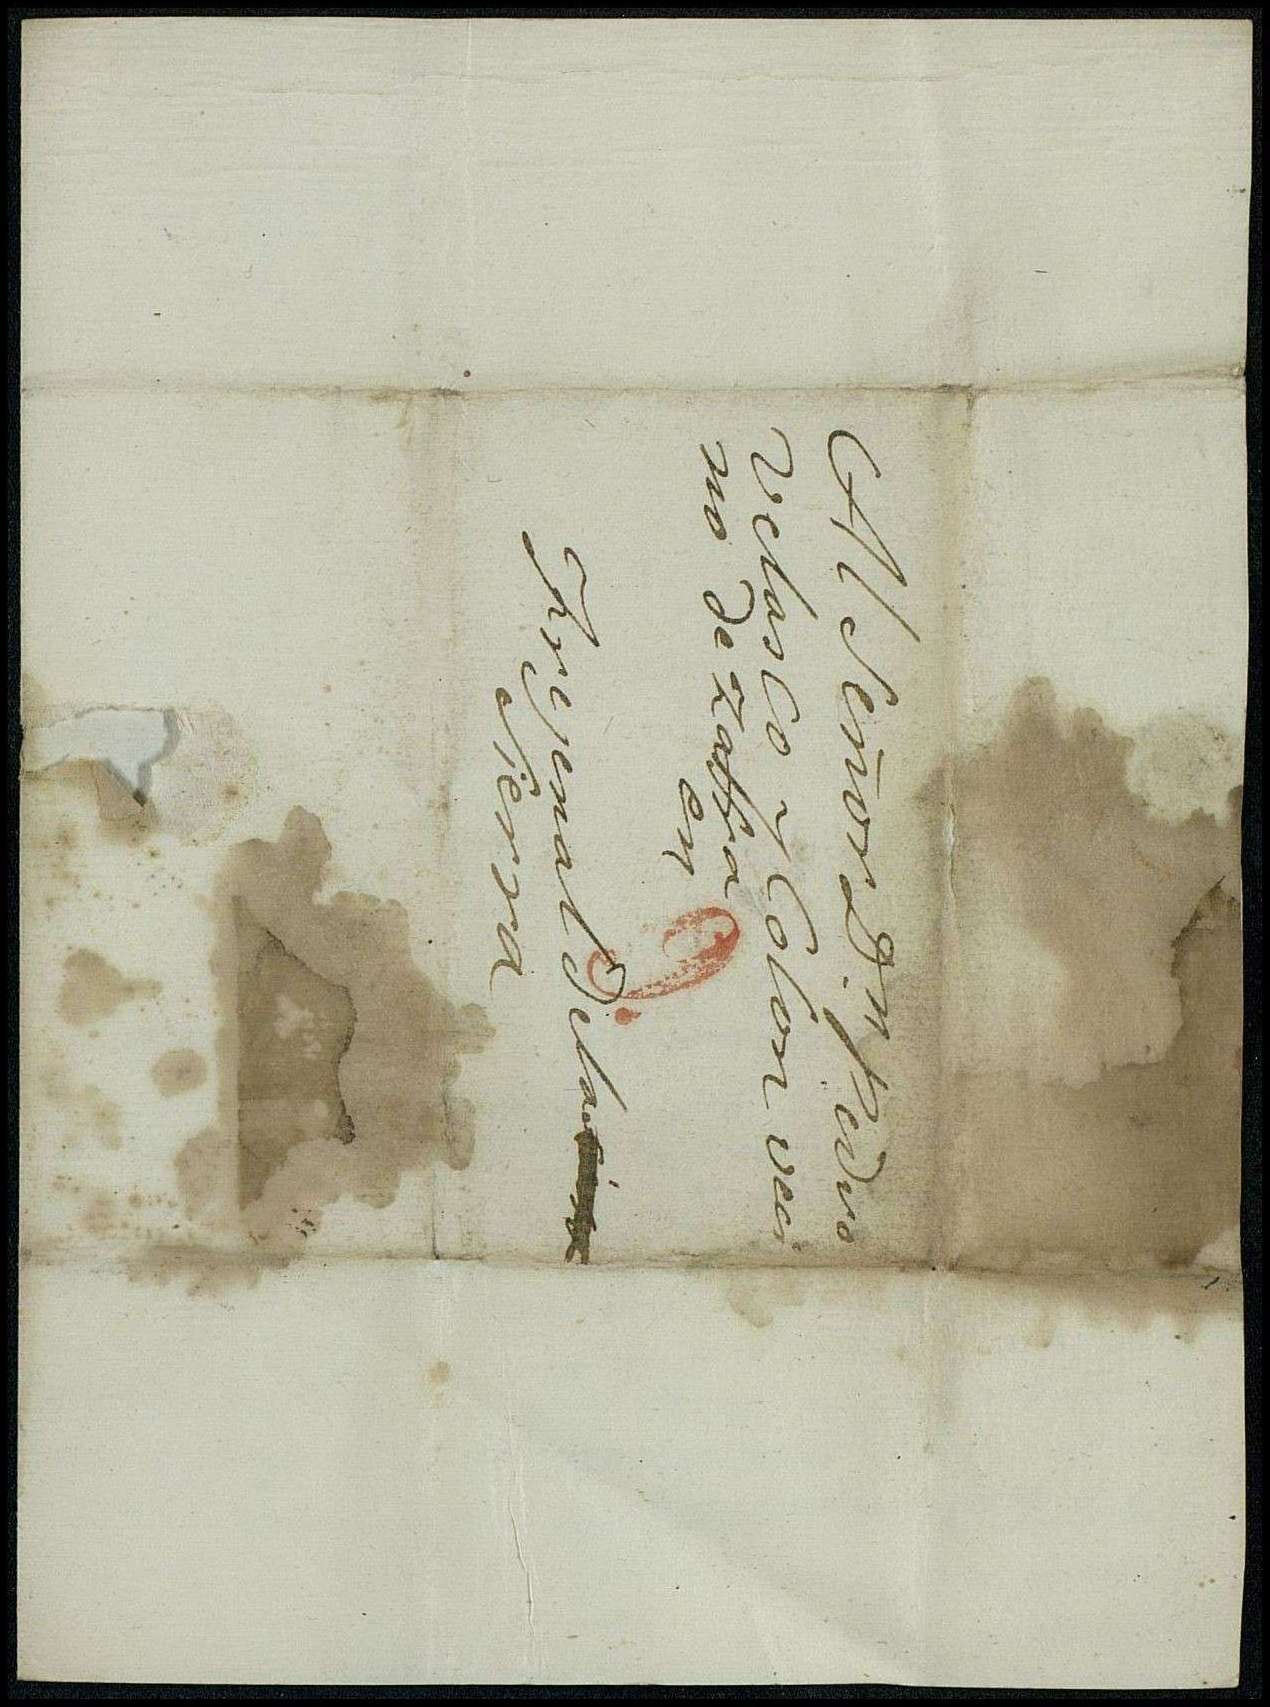 Al Señor Dn. Pedro
Velasco y Colon veci
no de Zaffra
en
9.
Frejenal Dela
Sierra